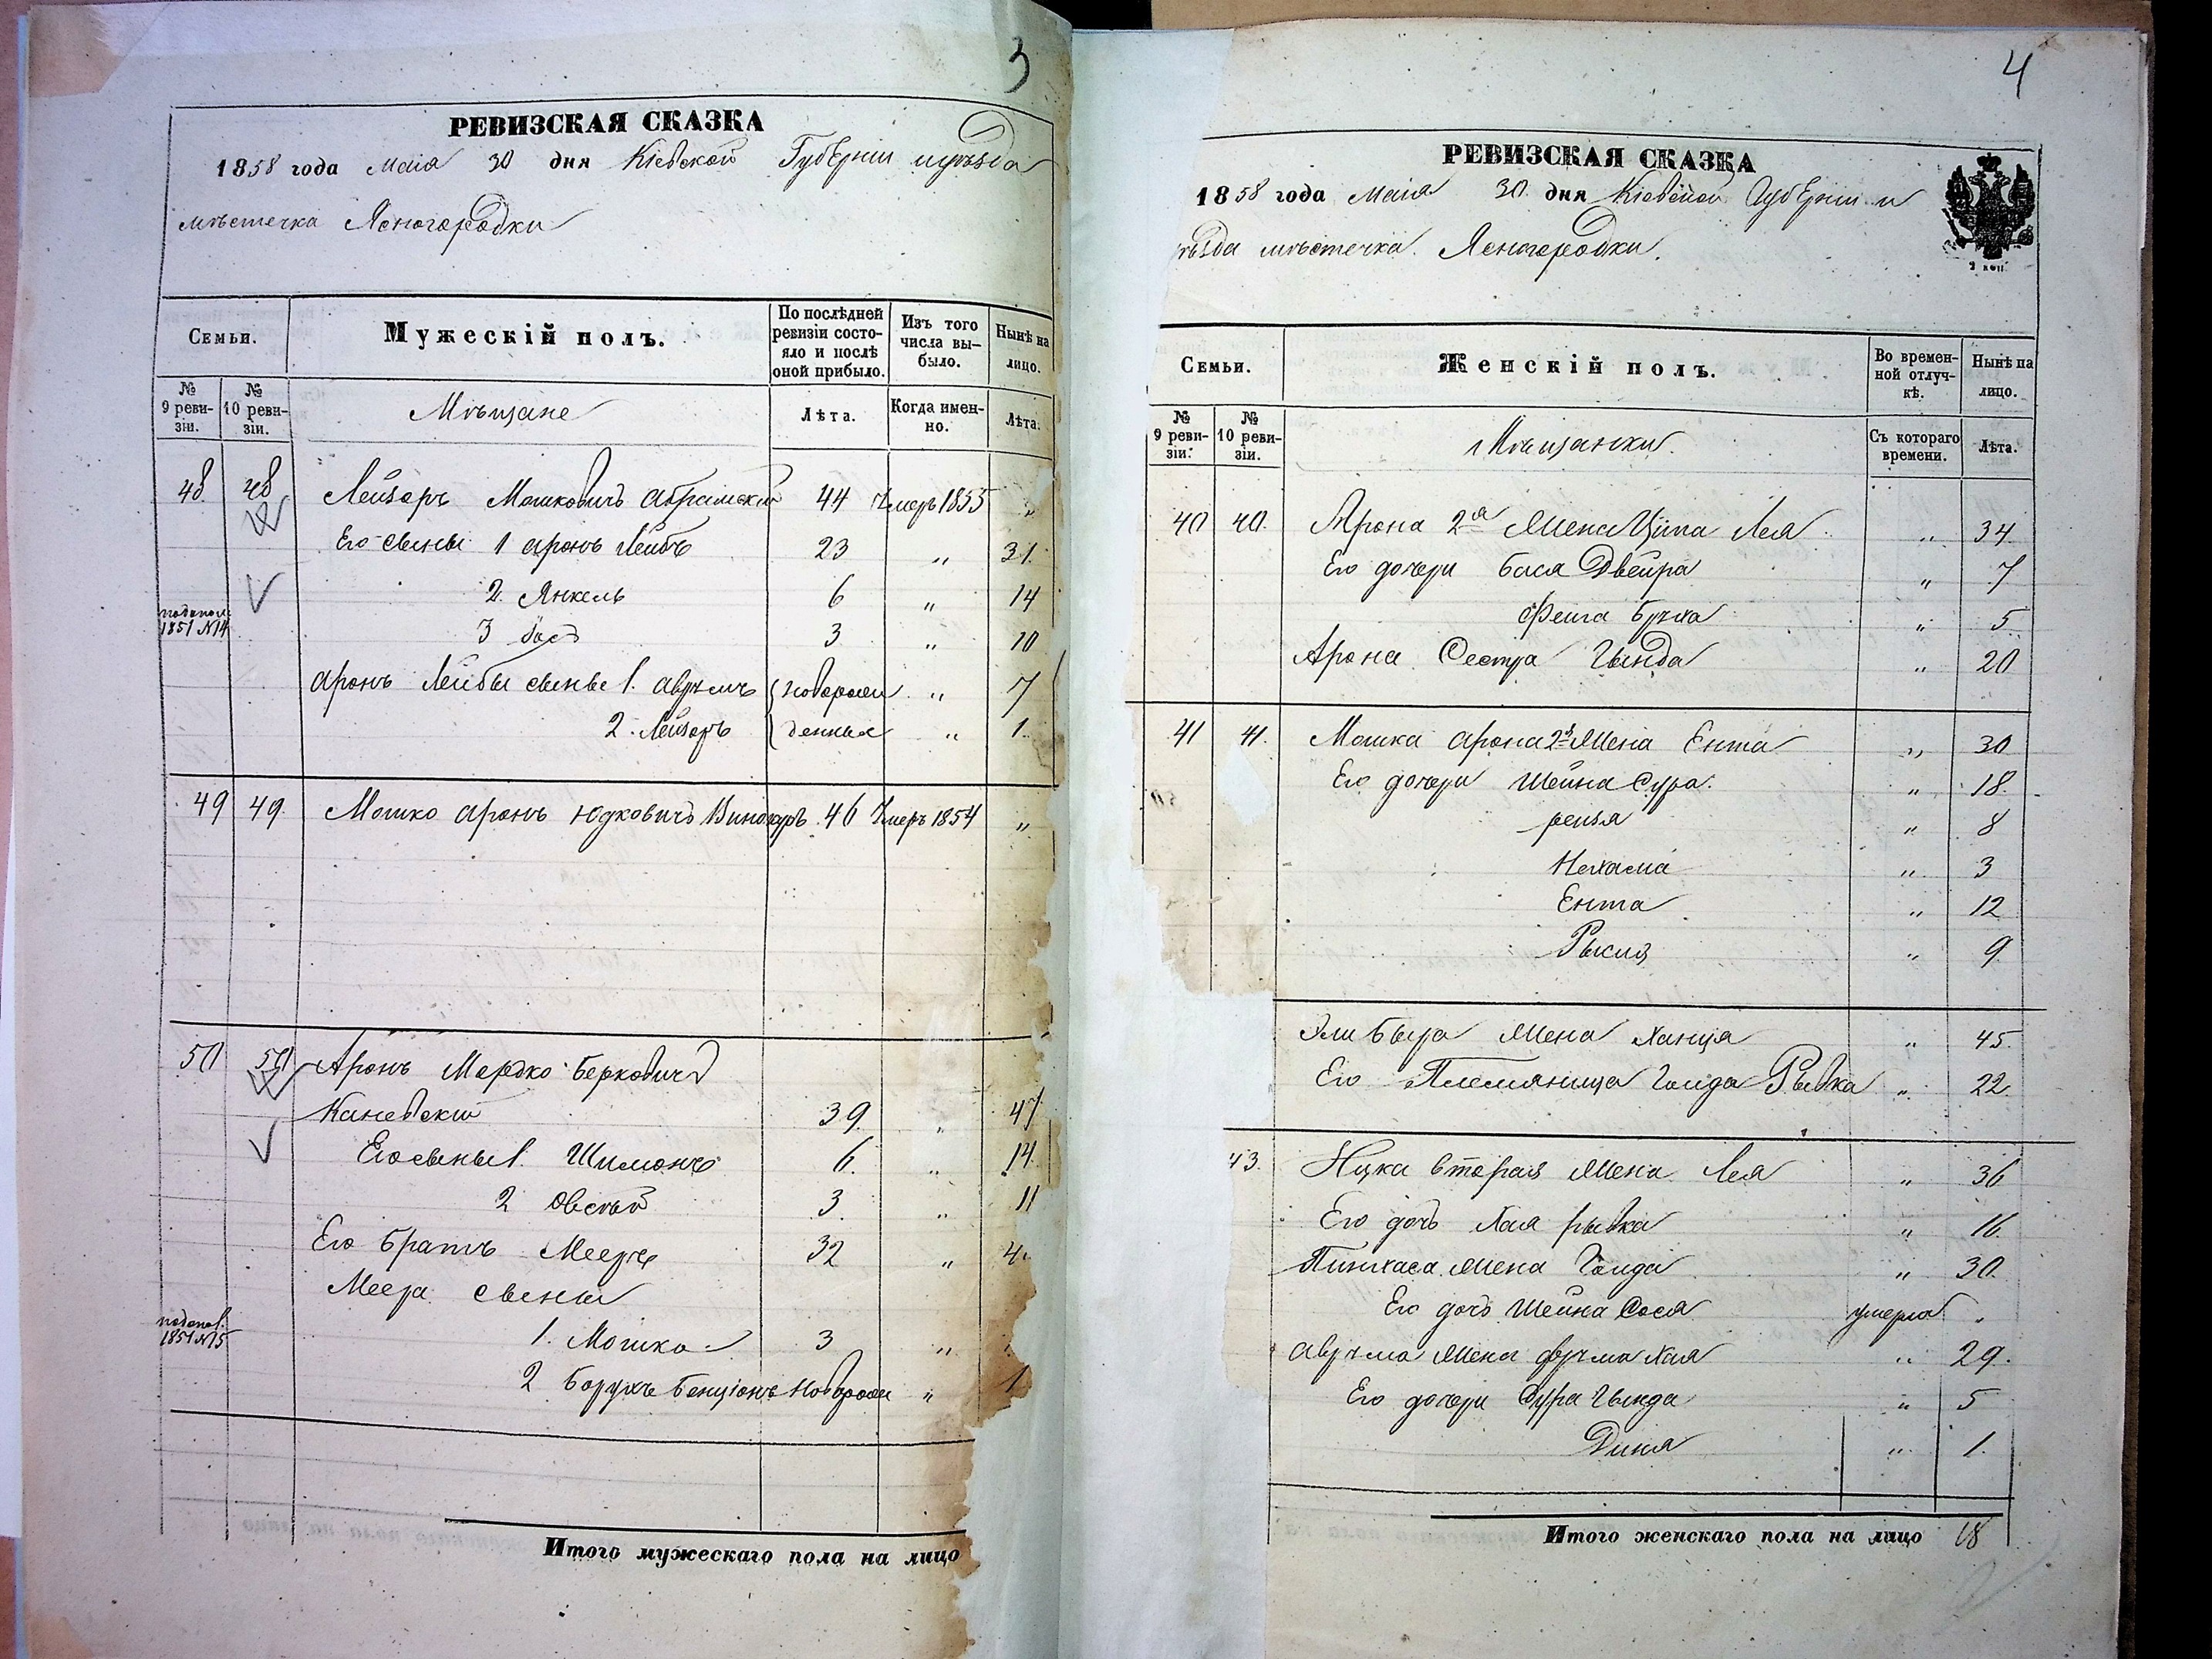 3
РЕВИЗСКАЯ СКАЗКА
1858 года Маія 30 дня Кіевской Губерніи и уѣзда
мѣстечка Ясногородки
Семьи.
Мужескій полъ.
По послѣдней ревизіи состояло и послѣ оной прибыло.
Изъ того числа выбыло.
Нынѣ на лицо.
№ 9 ревизіи.
№ 10 ревизіи.
Мѣщане
Лѣта.
Когда именно.
Лѣта.
48 48 Лейзоръ Мошковичъ Абрамскій 44 Умеръ 1855 "
Его сыны 1 Аронъ Лейбъ 23 " 31
2. Янкель 6 " 14
1851 №14
3 3 " 10
Аронъ Лейбы сыны 1. Аврумъ новорож " 7
2. Лейзоръ денные " 1.
49 49. Мошко Аронъ Юдковичъ 46 Умеръ 1854 "
50 50 Аронъ Мордко Берковичъ
Каневскій 39. " 47
Его сыны 1. Шимонъ 6. " 14.
2 Овсѣй 3. " 11
Его братъ Мееръ 32 "
Меера сыны
1851 №15
1. Мошко 3 "
2 Борухъ Бенціонъ Новорож " 1
Итого мужескаго пола на лицо
4
РЕВИЗСКАЯ СКАЗКА
1858 года Маія 30. дня Кіевской Губерніи и
уѣзда мѣстечка Ясногородки.
2 коп
Семьи.
Женскій полъ.
Во временной отлучкѣ.
Нынѣ на лицо.
№ 9 ревизіи.
№ 10 ревизіи.
Мѣщанки.
Съ котораго времени.
Лѣта.
40 40. Арона 2я Жена Ципа Лея " 34.
Его дочери Бася Двейра " 7
Фейга Бруха " 5.
Арона Сестра Гында " 20
41 41. Мошка Арона 2я Жена Ента " 30
Его дочери Шейна Сура. " 18.
рейзя " 8
Нехама " 3
Ента " 12
Рыся " 9.
Жена Ханця " 45.
Его Племянница Голда Рывка " 22.
43. Ицка вторая Жена Лея " 36
Его дочь Хая рывка " 16.
Пинхаса Жена Голда " 30.
Его дочь Шейна Сося умерла "
Аврума Жена фрума Хая " 29.
Его дочери Сура Гында " 5
Диня " 1.
Итого женскаго пола на лицо 18